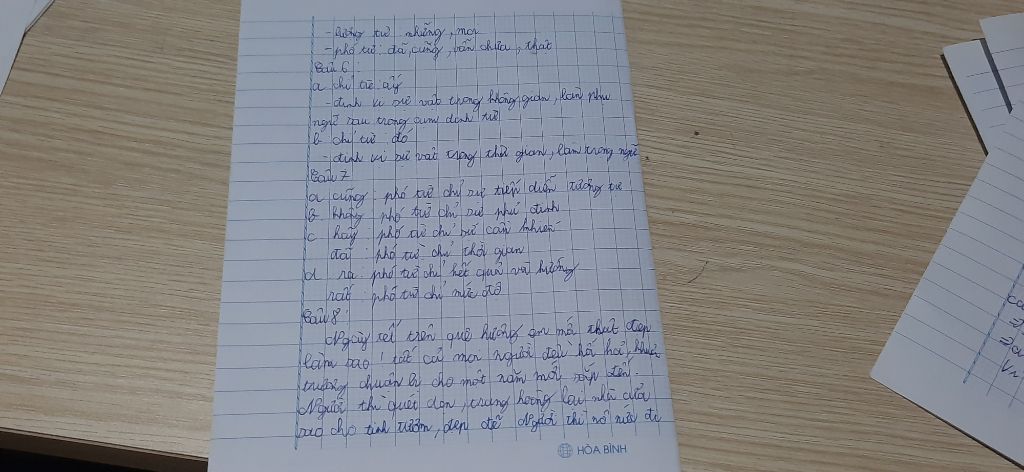 - lượng từ những, mọi
- phó từ: đã, cũng, vẫn chưa, thật
Câu 6:
a chỉ từ ấy
- định vị sự vật trong không gian, làm phụ
ngữ sau trong cụm danh từ
b chỉ từ đó
- định vị sự vật trong thời gian, làm trạng ngữ
Câu 7
a cũng: phó từ chỉ sự tiếp diễn tương tự
b không phó từ chỉ sự phủ định
c hãy: phó từ chỉ sự cầu khiến
đã: phó từ chỉ thời gian
d ra: phó từ chỉ kết quả và hướng
rất: phó từ chỉ mức độ
Câu 8:
Ngày tết trên quê hương em mới thật đẹp
làm sao! tất cả mọi người đều hối hả, khẩn
trương chuẩn bị cho một năm mới sắp đến.
Người thì quét dọn, trang hoàng lại nhà cửa
sao cho tinh tươm, đẹp đẽ Người thì nô nức đi
HÒA BÌNH